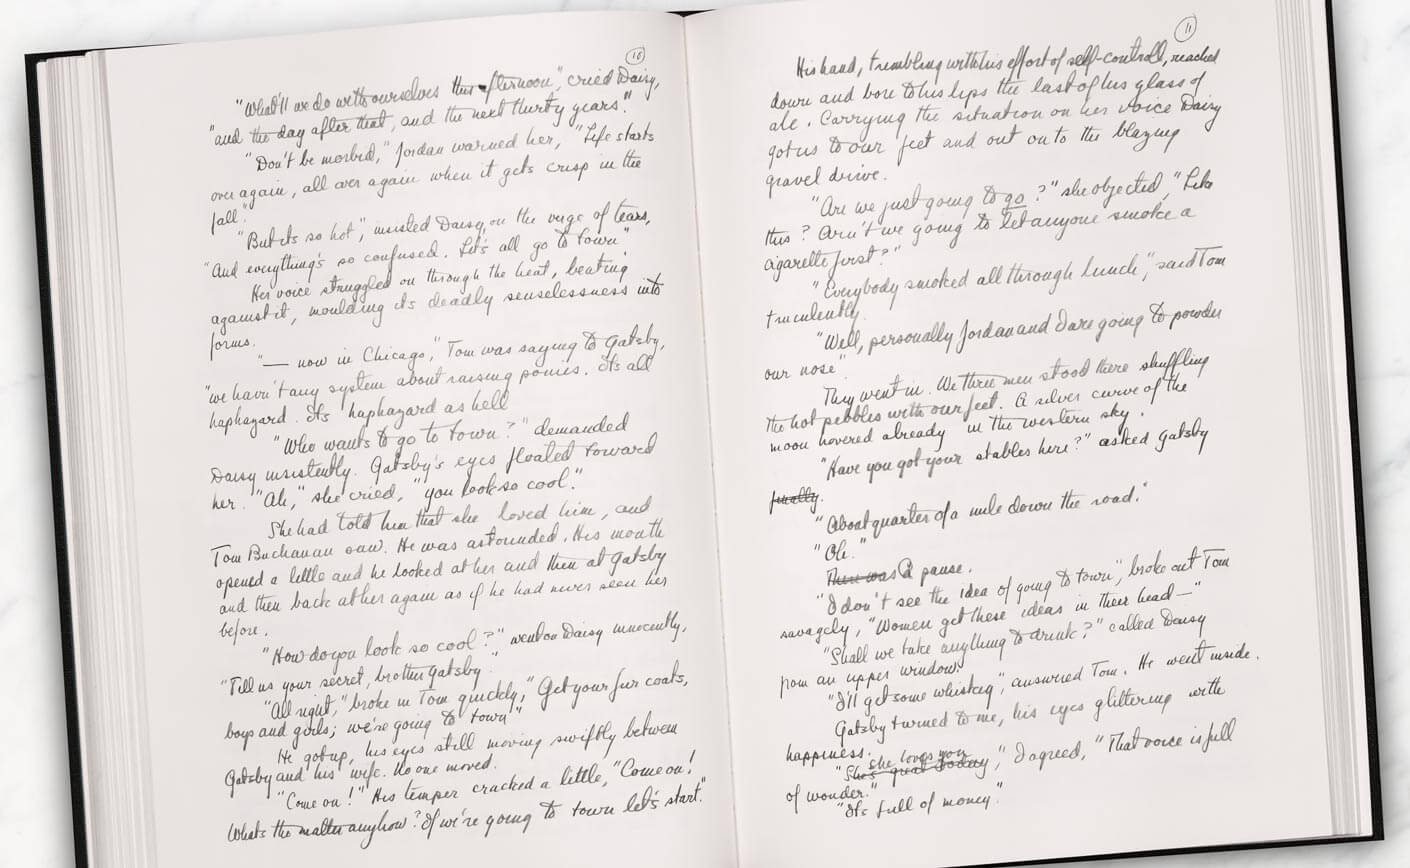 10
"What'll we do with ourselves this afternoon", cried Daisy,
"and the day after that, and the next thirty years."
"Don't be morbid," Jordan warned her, "Life starts
over again, all over again when it gets crisp in the
fall".
"But its so hot", insisted Daisy, on the verge of tears,
"And everything's so confused. Let's all go to town"
Her voice struggled on through the heat, beating
against it, moulding its deadly senselessness into
forms.
"— now in Chicago," Tom was saying to Gatsby,
"we havn't any system about raising ponies. Its all
haphazard. Its haphazard as hell
"Who wants to go to town?" demanded
Daisy insistently. Gatsby's eyes floated toward
her. "Ah," she cried, "you look so cool."
She had told him that she loved him, and
Tom Buchanan saw. He was astounded. His mouth
opened a little and he looked at her and then at Gatsby
and then back at her again as if he had never seen her
before.
"How do you look so cool?" went on Daisy innocently,
"Tell us your secret, brother Gatsby."
"All right," broke in Tom quickly, "Get your fur coats,
boys and girls; we're going to town"
He got up, his eyes still moving swiftly between
Gatsby and his wife. No one moved.
"Come on!" His temper cracked a little, "Come on!
Whats the matter anyhow? If we're going to town let's start."
11
His hand, trembling with his effort of self-controll, reached
down and bore to his lips the last of his glass of
ale. Carrying the situation on her voice Daisy
got us to our feet and out onto the blazing
gravel drive.
"Are we just going to go?" she objected, "Like
this? Arn't we going to let anyone smoke a
cigarette first?"
"Everybody smoked all through lunch", said Tom
truculently.
"Well, personally Jordan and I are going to powder
our nose".
They went in. We three men stood there shuffling
the hot pebbles with our feet. A silver curve of the
moon hovered already in the western sky.
"Have you got your stables here?" asked Gatsby
finally.
"About quarter of a mile down the road."
"Oh."
There was A pause.
"I don't see the idea of going to town", broke out Tom
savagely, "Women get these ideas in their head—"
"Shall we take anything to drink?" called Daisy
from an upper window.
"I'll get some whiskey", answered Tom. He went inside.
Gatsby turned to me, his eyes glittering with
happiness.
she loves you
"She's great today", I agreed, "That voice is full
of wonder."
"Its full of money".